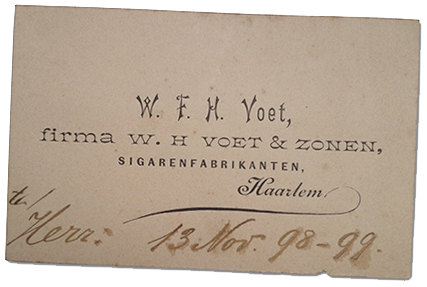 W. F. H. Voet,
firma W. H VOET & ZONEN,
SIGARENFABRIKANTEN,
Haarlem.
te
Herr: 13 Nov. 98-99.